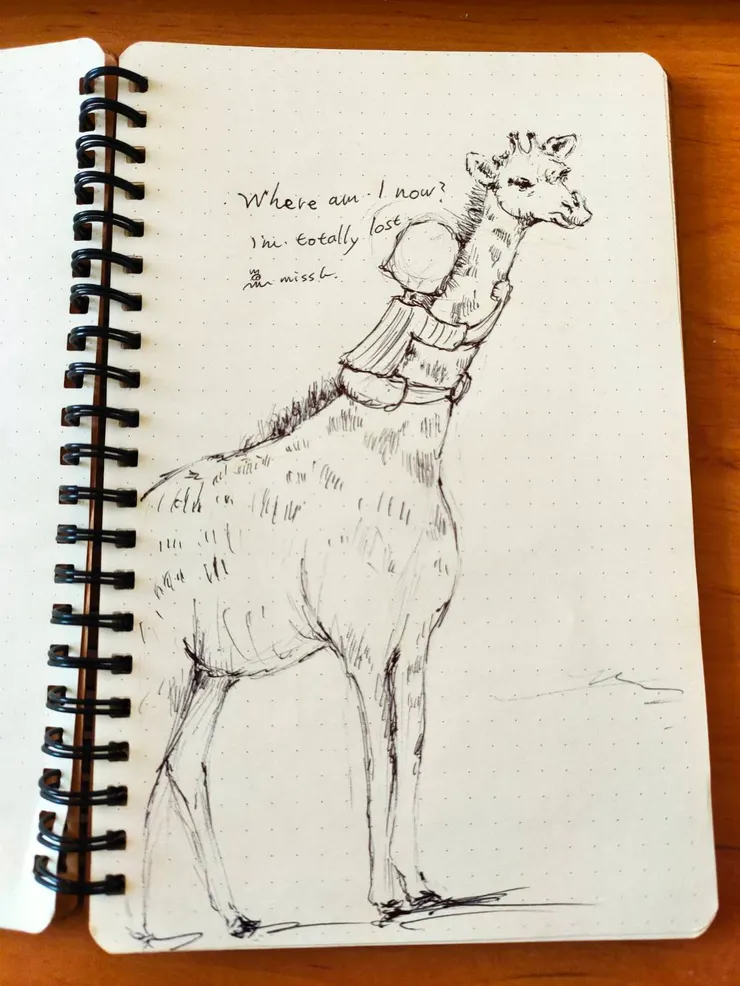 Where am I now?
I'm totally lost
miss